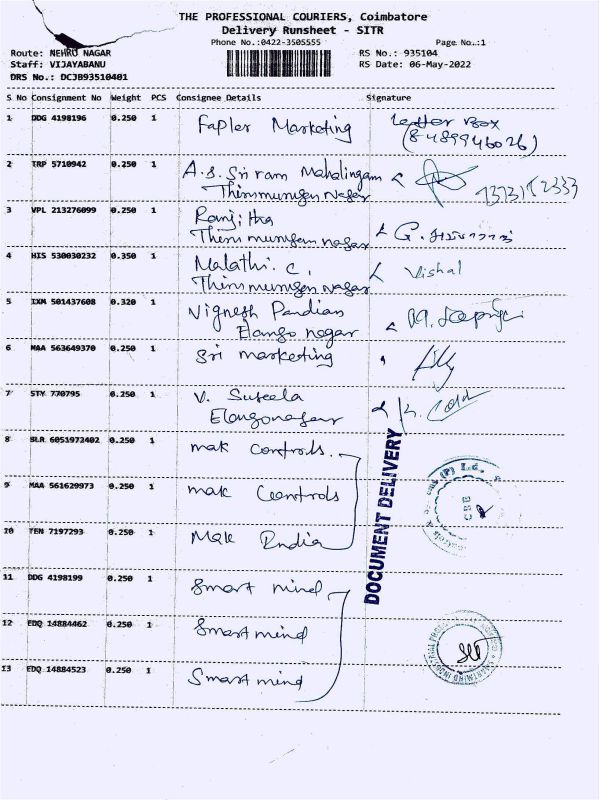 THE PROFESSIONAL COURIERS, Coimbatore
Delivery Runsheet - SITR
Phone No.:0422-3505555
Page No.:1
Route: NEHRU NAGAR
RS No.: 935104
Staff: VIJAYABANU
RS Date: 06-May-2022
DRS No.: DCJB93510401
S No Consignment No Weight PCS Consignee Details Signature
1 DDG 4198196 0.250 1 Fapler Marketing Letter Box
(8489946026)
2 TRP 5710942 0.250 1 A.S. Sri ram Mahalingam
Thirumurugan Nagar
3 VPL 213276099 0.250 1 Ranjitha G.
Thirumurugan nagar
4 HIS 530030232 0.350 1 Malathi. C, Vishal
Thirumurugan Nagar
5 IXM 501437608 0.320 1 Vignesh Pandian
Elango nagar
6 MAA 563649370 0.250 1 Sri marketing
7 STY 770795 0.250 1 V. Suseela
Elangonagar
8 BLR 6051973402 0.250 1 mak controls.
9 MAA 561629973 0.250 1 mak Controls
10 TEN 7197293 0.250 1 Mak India
DOCUMENT DELIVERY
11 DDG 4198199 0.250 1 Smart mind
12 EDQ 14884462 0.250 1 Smart mind
13 EDQ 14884523 0.250 1 Smart mind